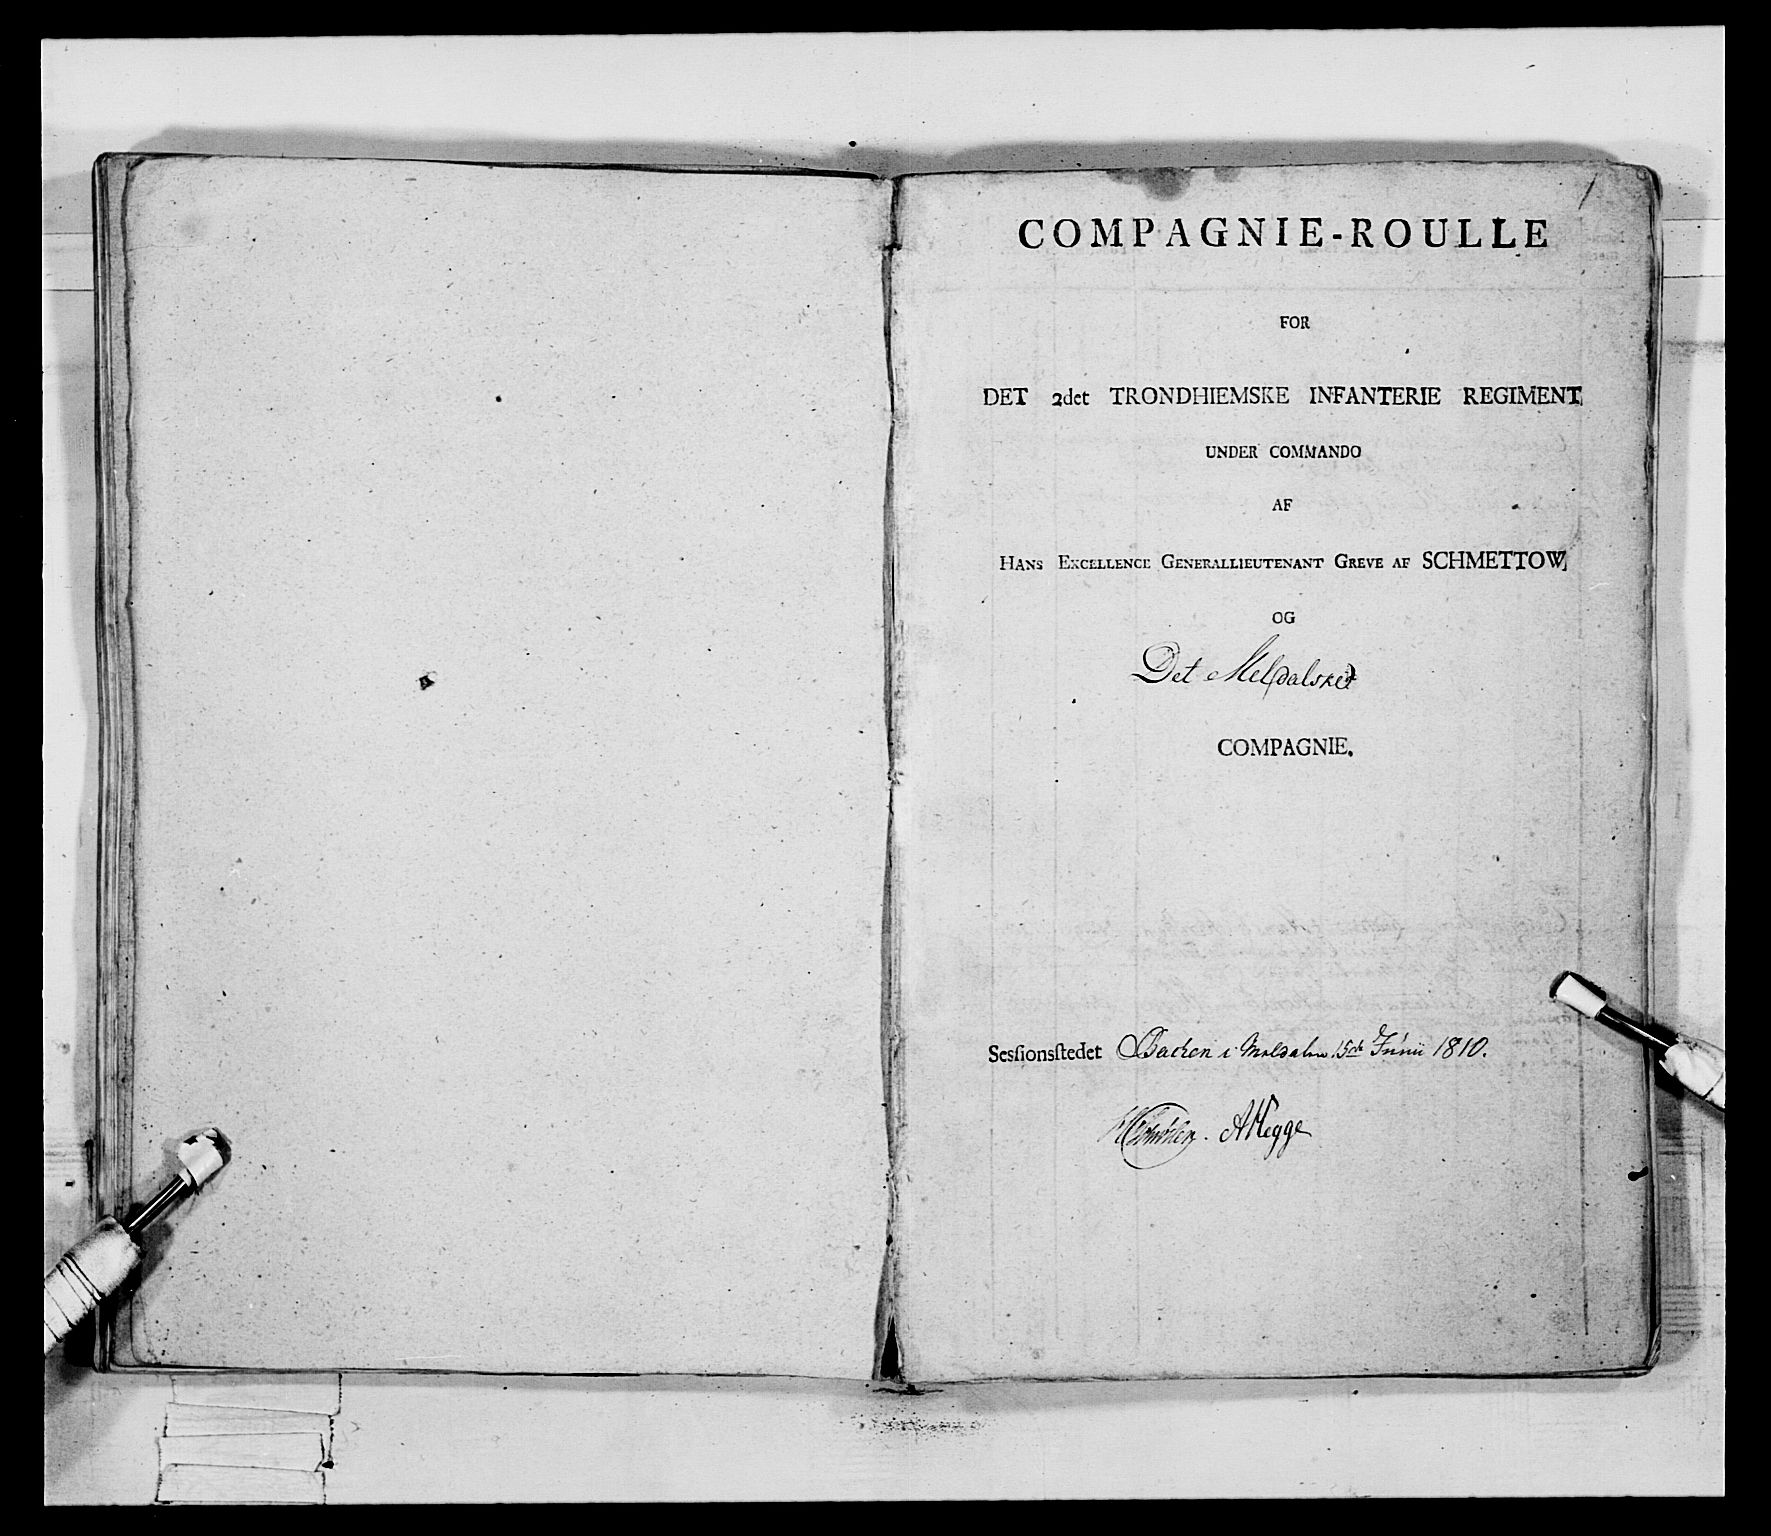 COMPAGNIE-ROULLE
FOR
DET 2det TRONDHIEMSKE INFANTERIE REGIMENT,
UNDER COMMANDO
AF
HANS EXCELLENCE GENERALLIEUTENANT GREVE AF SCHMETTOW,
OG
Det Meldalske
COMPAGNIE.
Sessionsstedet Backen i Meldalen 15de Junii 1810.
AHegge